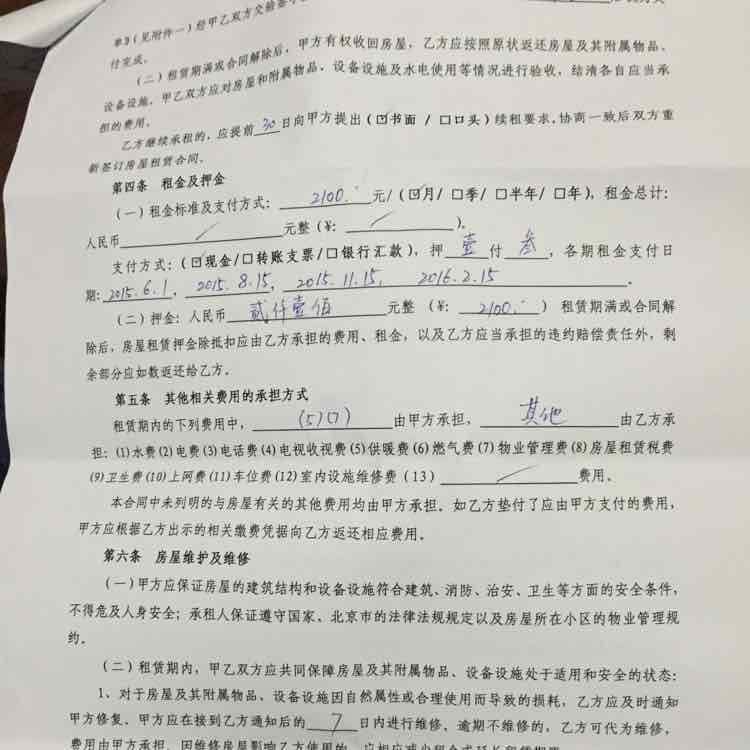 单》(见附件一)经甲乙双方交验签
付完成。
(二)租赁期满或合同解除后,甲方有权收回房屋,乙方应按照原状返还房屋及其附属物品、
设备设施。甲乙双方应对房屋和附属物品、设备设施及水电使用等情况进行验收,结清各自应当承
担的费用。
乙方继续承租的,应提前 30 日向甲方提出(☑书面 / □口头)续租要求,协商一致后双方重
新签订房屋租赁合同。
第四条 租金及押金
(一)租金标准及支付方式: 2100. 元/(☑月/ □季/ □半年/ □年),租金总计:
人民币 / 元整(¥: / )。
支付方式:(☑现金/□转账支票/□银行汇款),押 壹 付 叁 ,各期租金支付日
期: 2015.6.1 , 2015.8.15 , 2015.11.15 , 2016.2.15 .
(二)押金:人民币 贰仟壹佰 元整 (¥: 2100. ) 租赁期满或合同解
除后,房屋租赁押金除抵扣应由乙方承担的费用、租金,以及乙方应当承担的违约赔偿责任外,剩
余部分应如数返还给乙方。
第五条 其他相关费用的承担方式
租赁期内的下列费用中, (5)(7) 由甲方承担, 其他 由乙方承
担:(1)水费(2)电费(3)电话费(4)电视收视费(5)供暖费(6)燃气费(7)物业管理费(8)房屋租赁税费
(9)卫生费(10)上网费(11)车位费(12)室内设施维修费(13) / 费用。
本合同中未列明的与房屋有关的其他费用均由甲方承担。如乙方垫付了应由甲方支付的费用,
甲方应根据乙方出示的相关缴费凭据向乙方返还相应费用。
第六条 房屋维护及维修
(一)甲方应保证房屋的建筑结构和设备设施符合建筑、消防、治安、卫生等方面的安全条件,
不得危及人身安全;承租人保证遵守国家、北京市的法律法规规定以及房屋所在小区的物业管理规
约。
(二)租赁期内,甲乙双方应共同保障房屋及其附属物品、设备设施处于适用和安全的状态:
1、对于房屋及其附属物品、设备设施因自然属性或合理使用而导致的损耗,乙方应及时通知
甲方修复。甲方应在接到乙方通知后的 7 日内进行维修。逾期不维修的,乙方可代为维修,
费用由甲方承担。因维修房屋影响乙方使用的,应相应减少租金或延长租赁期限。